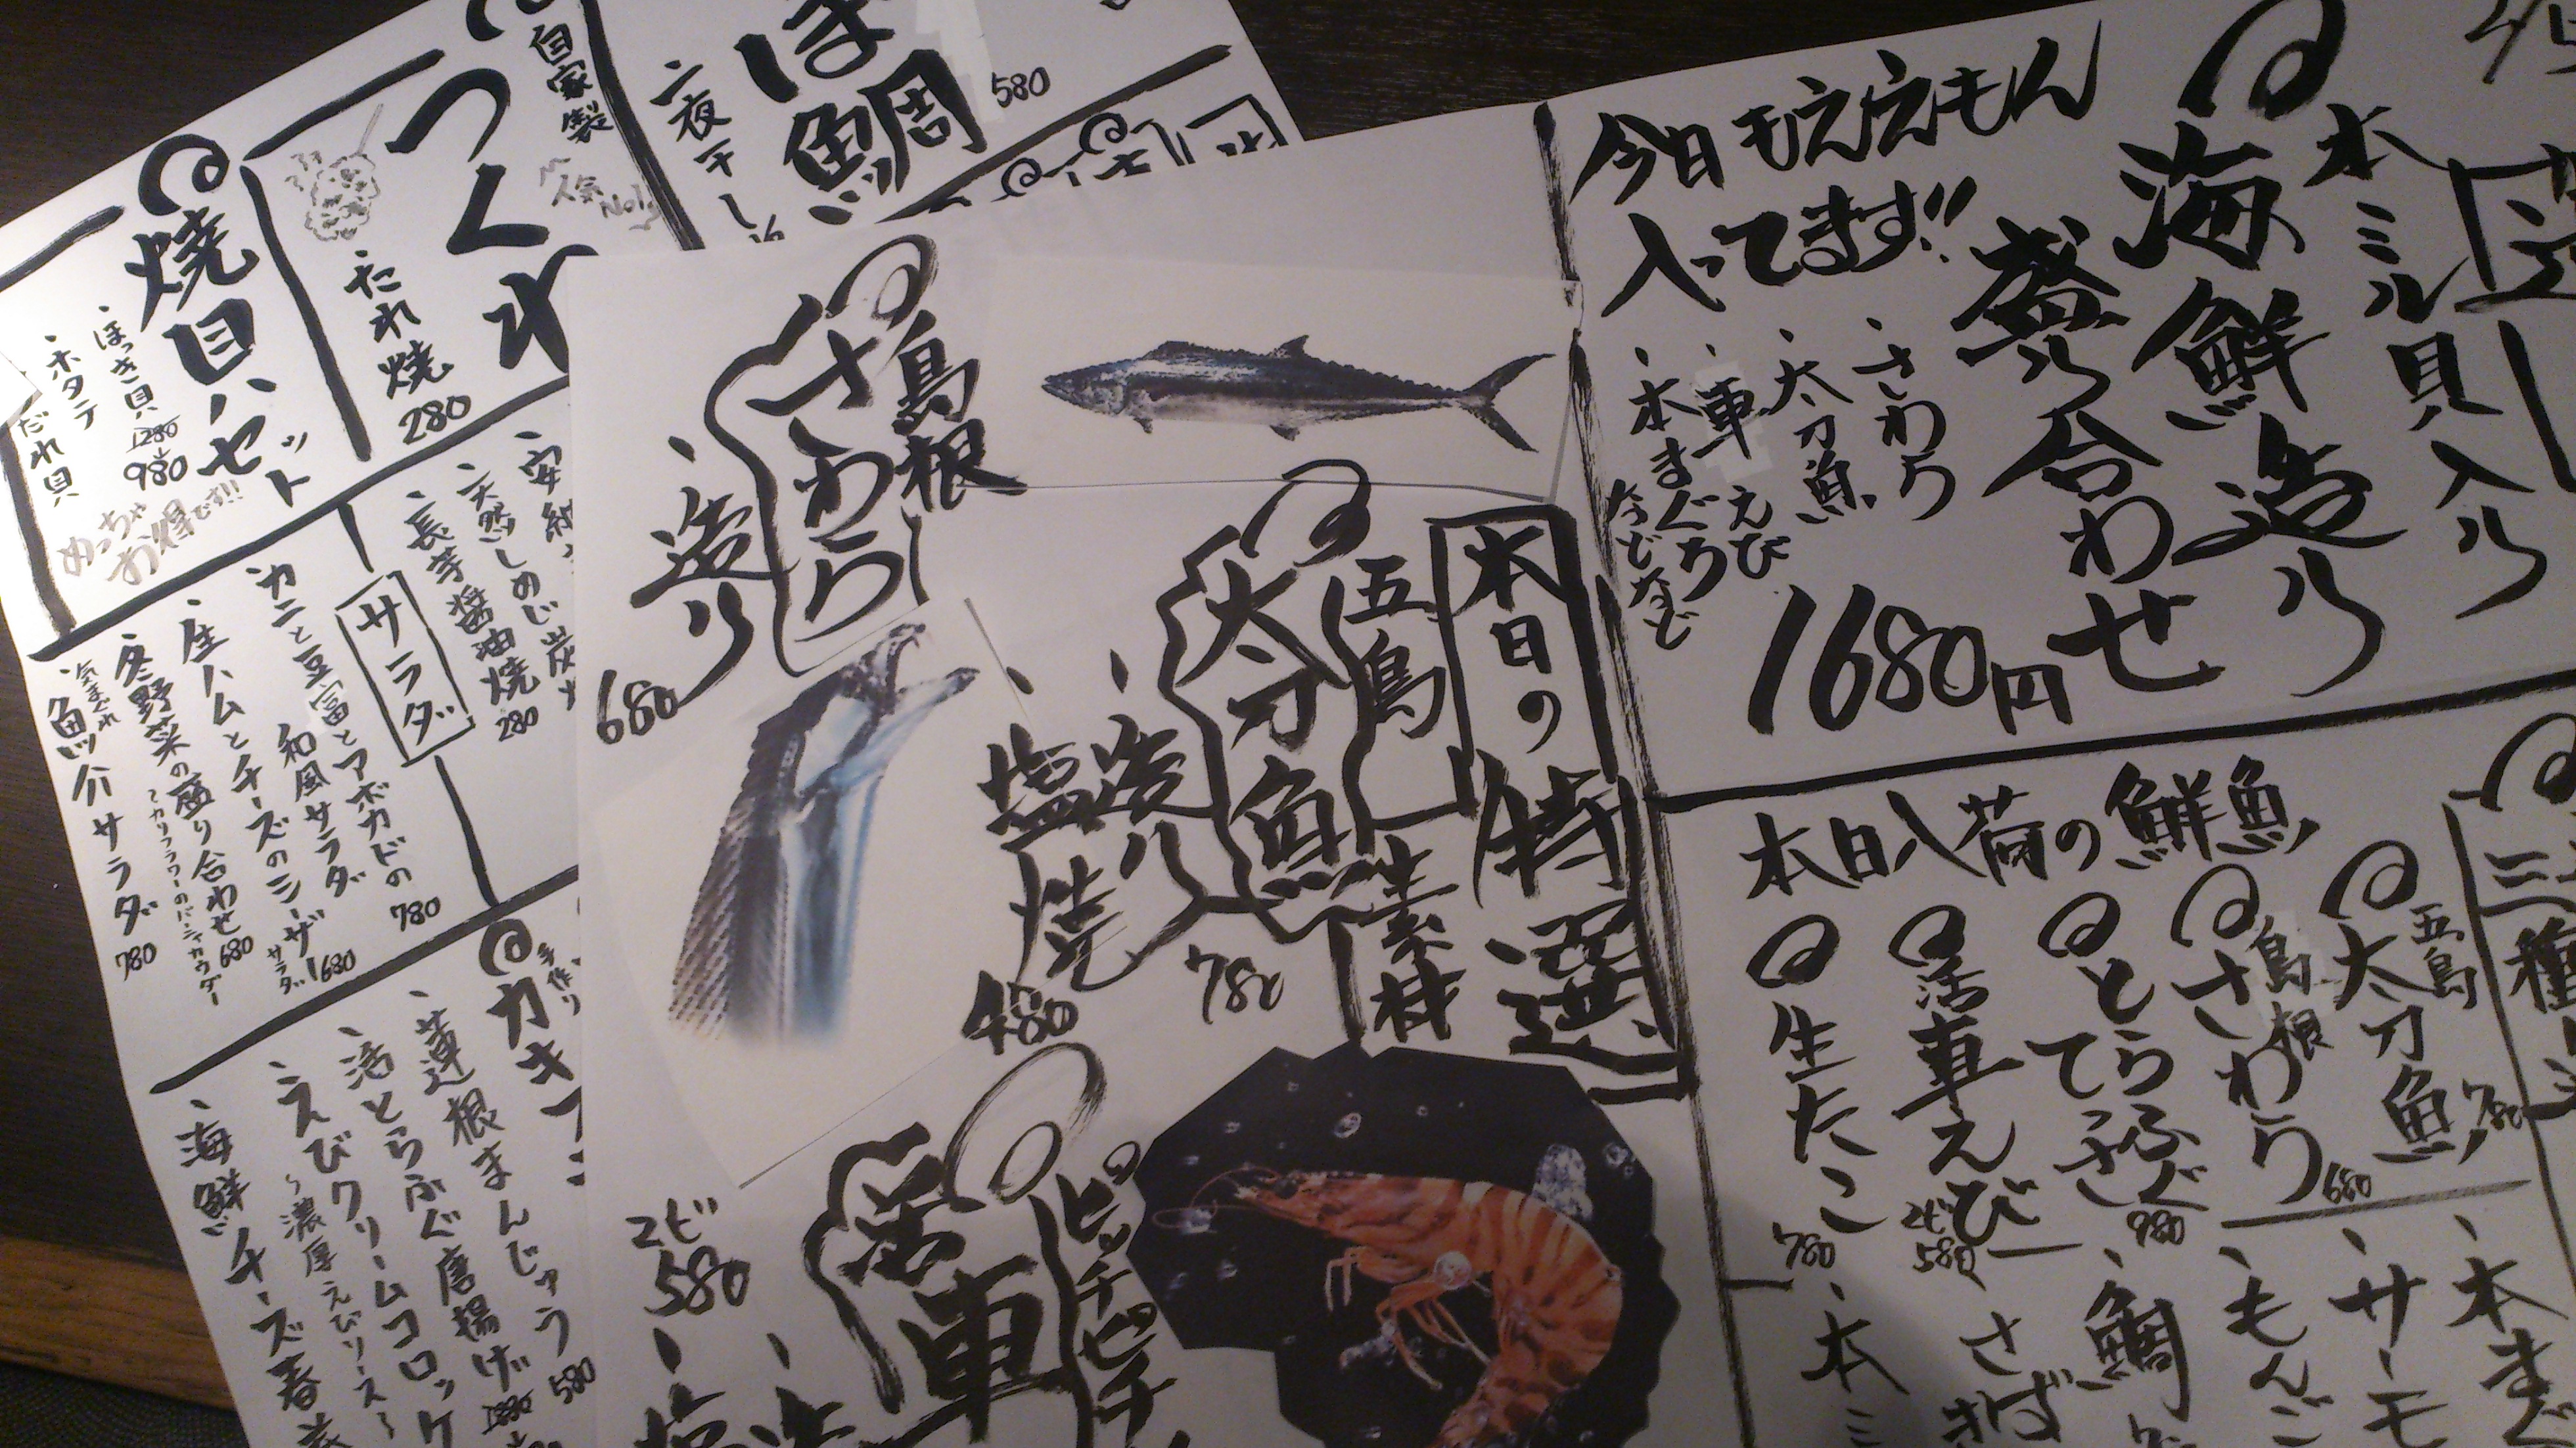 本ミル貝入り
海鮮造り
盛り合わせ
1680円
今日もええもん
入ってます!!
・さわら
・太刀魚
・車えび
・本まぐろ
などなど
本日入荷の鮮魚
五島
太刀魚
780
島根
さわら
680
とらふぐ
てっさ
980
活車えび
2ビ
580
生たこ
780
・サーモ
・もんご
・鯛
本日の特選
素材
五島
太刀魚
・造り
780
・塩焼
480
島根
さわら
・造り
680
ピッチピチ
活車
2ビ
580
ぼ鯛
580
一夜干し
自家製
つくね
人気No1
・たれ焼
280
焼貝セット
・ほっき貝
1280
980
・ホタテ
めっちゃ
お得です!!
・天然しめじ炭火
・長芋醤油焼
280
サラダ
・カニと豆富とアボカドの
和風サラダ
780
・生ハムとチーズのシーザーサラダ
680
・冬野菜の盛り合わせ
680
～カリフラワーのバーニャカウダー
気まぐれ
・魚介サラダ
780
手作り
・蓮根まんじゅう
580
・活とらふぐ唐揚げ
・えびクリームコロッケ
～濃厚えびソース～
・海鮮チーズ春